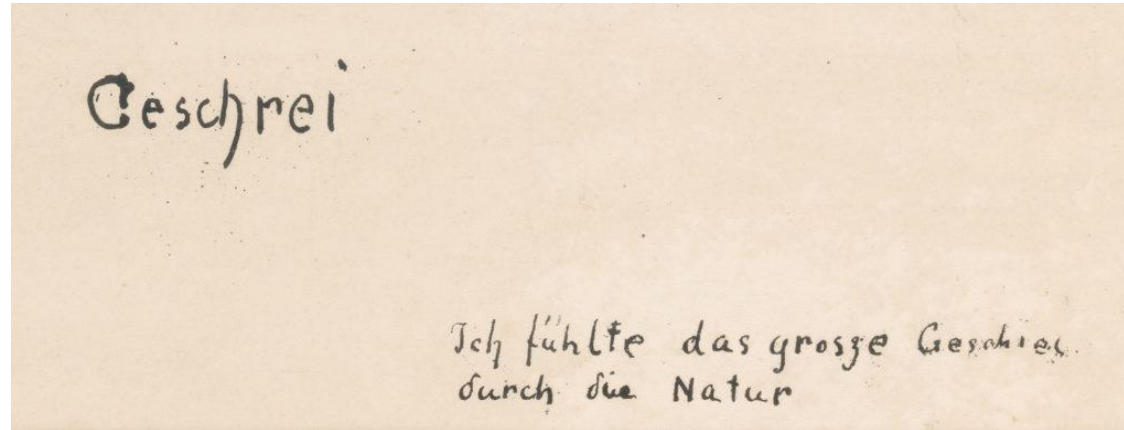 Geschrei
Ich fühlte das grosse Geschrei
durch die Natur